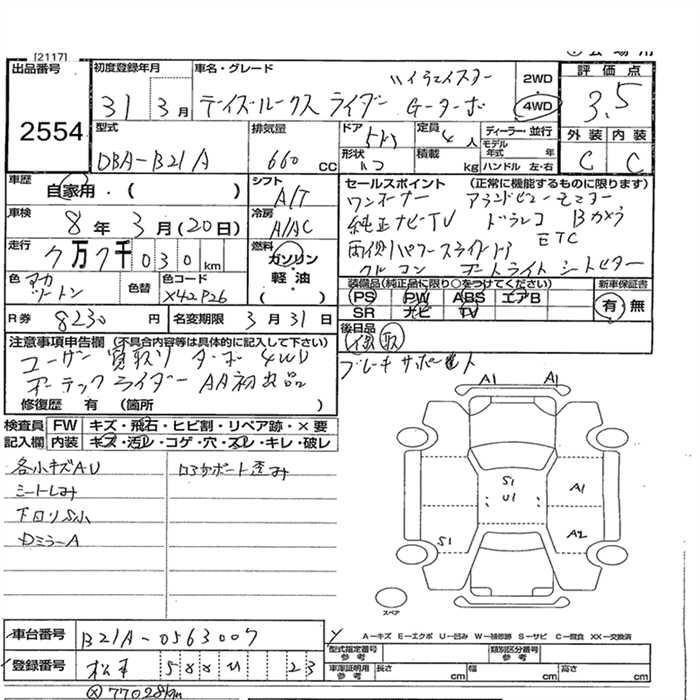 [2117]
出品番号
2554
初度登録年月
31 3月
車名・グレード
ハイウェイスター
デイズルークス ライダー Gターボ
2WD
4WD
評価点
3.5
外装 内装
C C
型式
DBA-B21A
排気量
660 CC
ドア
形状
定員
4人
積載
kg
ディーラー・並行
モデル年式 年
ハンドル 左・右
車歴
自家用・( )
シフト
A/T
車検
8年 3月(20日)
冷房
A/AC
走行
7万7千030km
燃料
ガソリン
軽油
( )
色
アカ
ツートン
色替
色コード
X42P26
R券 8230円
名変期限 3月31日
セールスポイント (正常に機能するものに限ります)
ワンオーナー アラウンドビューモニター
純正ナビTV ドラレコ Bカメラ
両側パワースライドドア
ETC
オートライト シートヒーター
装備品(純正品に限り○をつけてください)
PS PW ABS エアB
SR ナビ TV
新車保証書
有 無
後日品
保 取
注意事項申告欄 (不具合内容等は具体的に記入して下さい)
ユーザー買取り ターボ 4WD
オーテックライダー AA初出品
ブレーキサポート
修復歴 有 (箇所 )
検査員記入欄
FW キズ・飛石・ヒビ割・リペア跡・×要
内装 キズ・汚レ・コゲ・穴・スレ・キレ・破レ
各小キズAU
シートしみ
下回りS小
DミラーA
A1 A1
S1
U1
A1
S1
A2
スペア
A-キズ E-エクボ U-凹み W-補修跡 S-サビ C-腐食 XX-交換済
車台番号 B21A-0563007
登録番号 松本 23
型式指定番号 参考
類別区分番号 参考
車庫証明用 参考
長さ cm
幅 cm
高さ cm
77028km